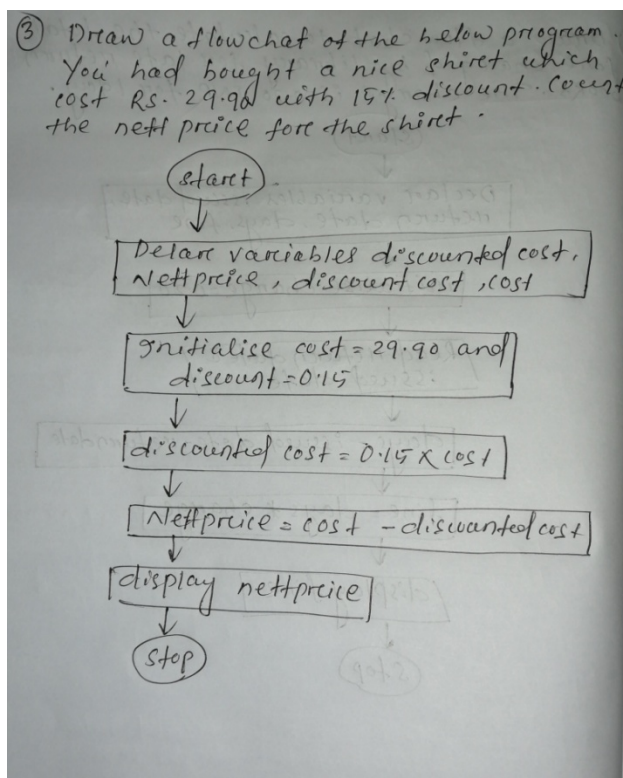 ③ Draw a flowchat of the below program.
You had bought a nice shirt which
cost Rs. 29.90 with 15% discount. Count
the nett price for the shirt.
start
Delare variables discounted cost,
Nettprice, discount cost, cost
Initialise cost = 29.90 and
discount = 0.15
discounted cost = 0.15 X cost
Nettprice = cost - discounted cost
display nettprice
stop